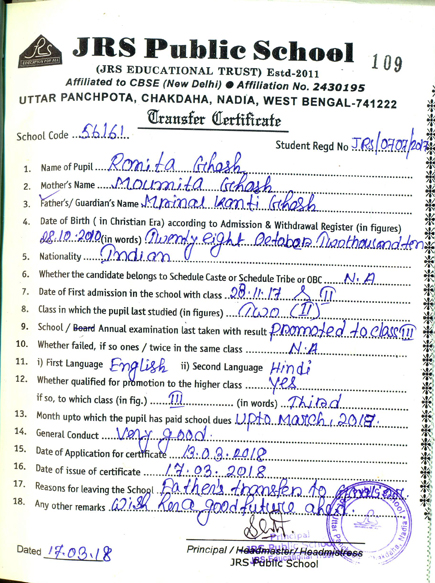 JRS Public School
109
(JRS EDUCATIONAL TRUST) Estd-2011
Affiliated to CBSE (New Delhi) ● Affiliation No. 2430195
UTTAR PANCHPOTA, CHAKDAHA, NADIA, WEST BENGAL-741222
Transfer Certificate
School Code ...56161...
Student Regd No JRS/0707/2017
1. Name of Pupil Ronita Ghosh
2. Mother's Name Moumita Ghosh
3. Father's/ Guardian's Name Mrinal Kanti Ghosh
4. Date of Birth ( in Christian Era) according to Admission & Withdrawal Register (in figures)
28.10.2010 (in words) Twenty eight October Two thousand ten
5. Nationality Indian
6. Whether the candidate belongs to Schedule Caste or Schedule Tribe or OBC N.A
7. Date of First admission in the school with class 28.11.17 & II
8. Class in which the pupil last studied (in figures) Two (II)
9. School / Board Annual examination last taken with result promoted to class III
10. Whether failed, if so ones / twice in the same class N.A
11. i) First Language English ii) Second Language Hindi
12. Whether qualified for promotion to the higher class yes
if so, to which class (in fig.) III (in words) Third
13. Month upto which the pupil has paid school dues Upto March, 2018.
14. General Conduct Very good.
15. Date of Application for certificate 13.03.2018
16. Date of issue of certificate 17.03.2018
17. Reasons for leaving the School Father's transfer to
18. Any other remarks Wish her a good future ahead.
Principal
Dated 17.03.18
Principal / Headmaster/ Headmistress
JRS Public School